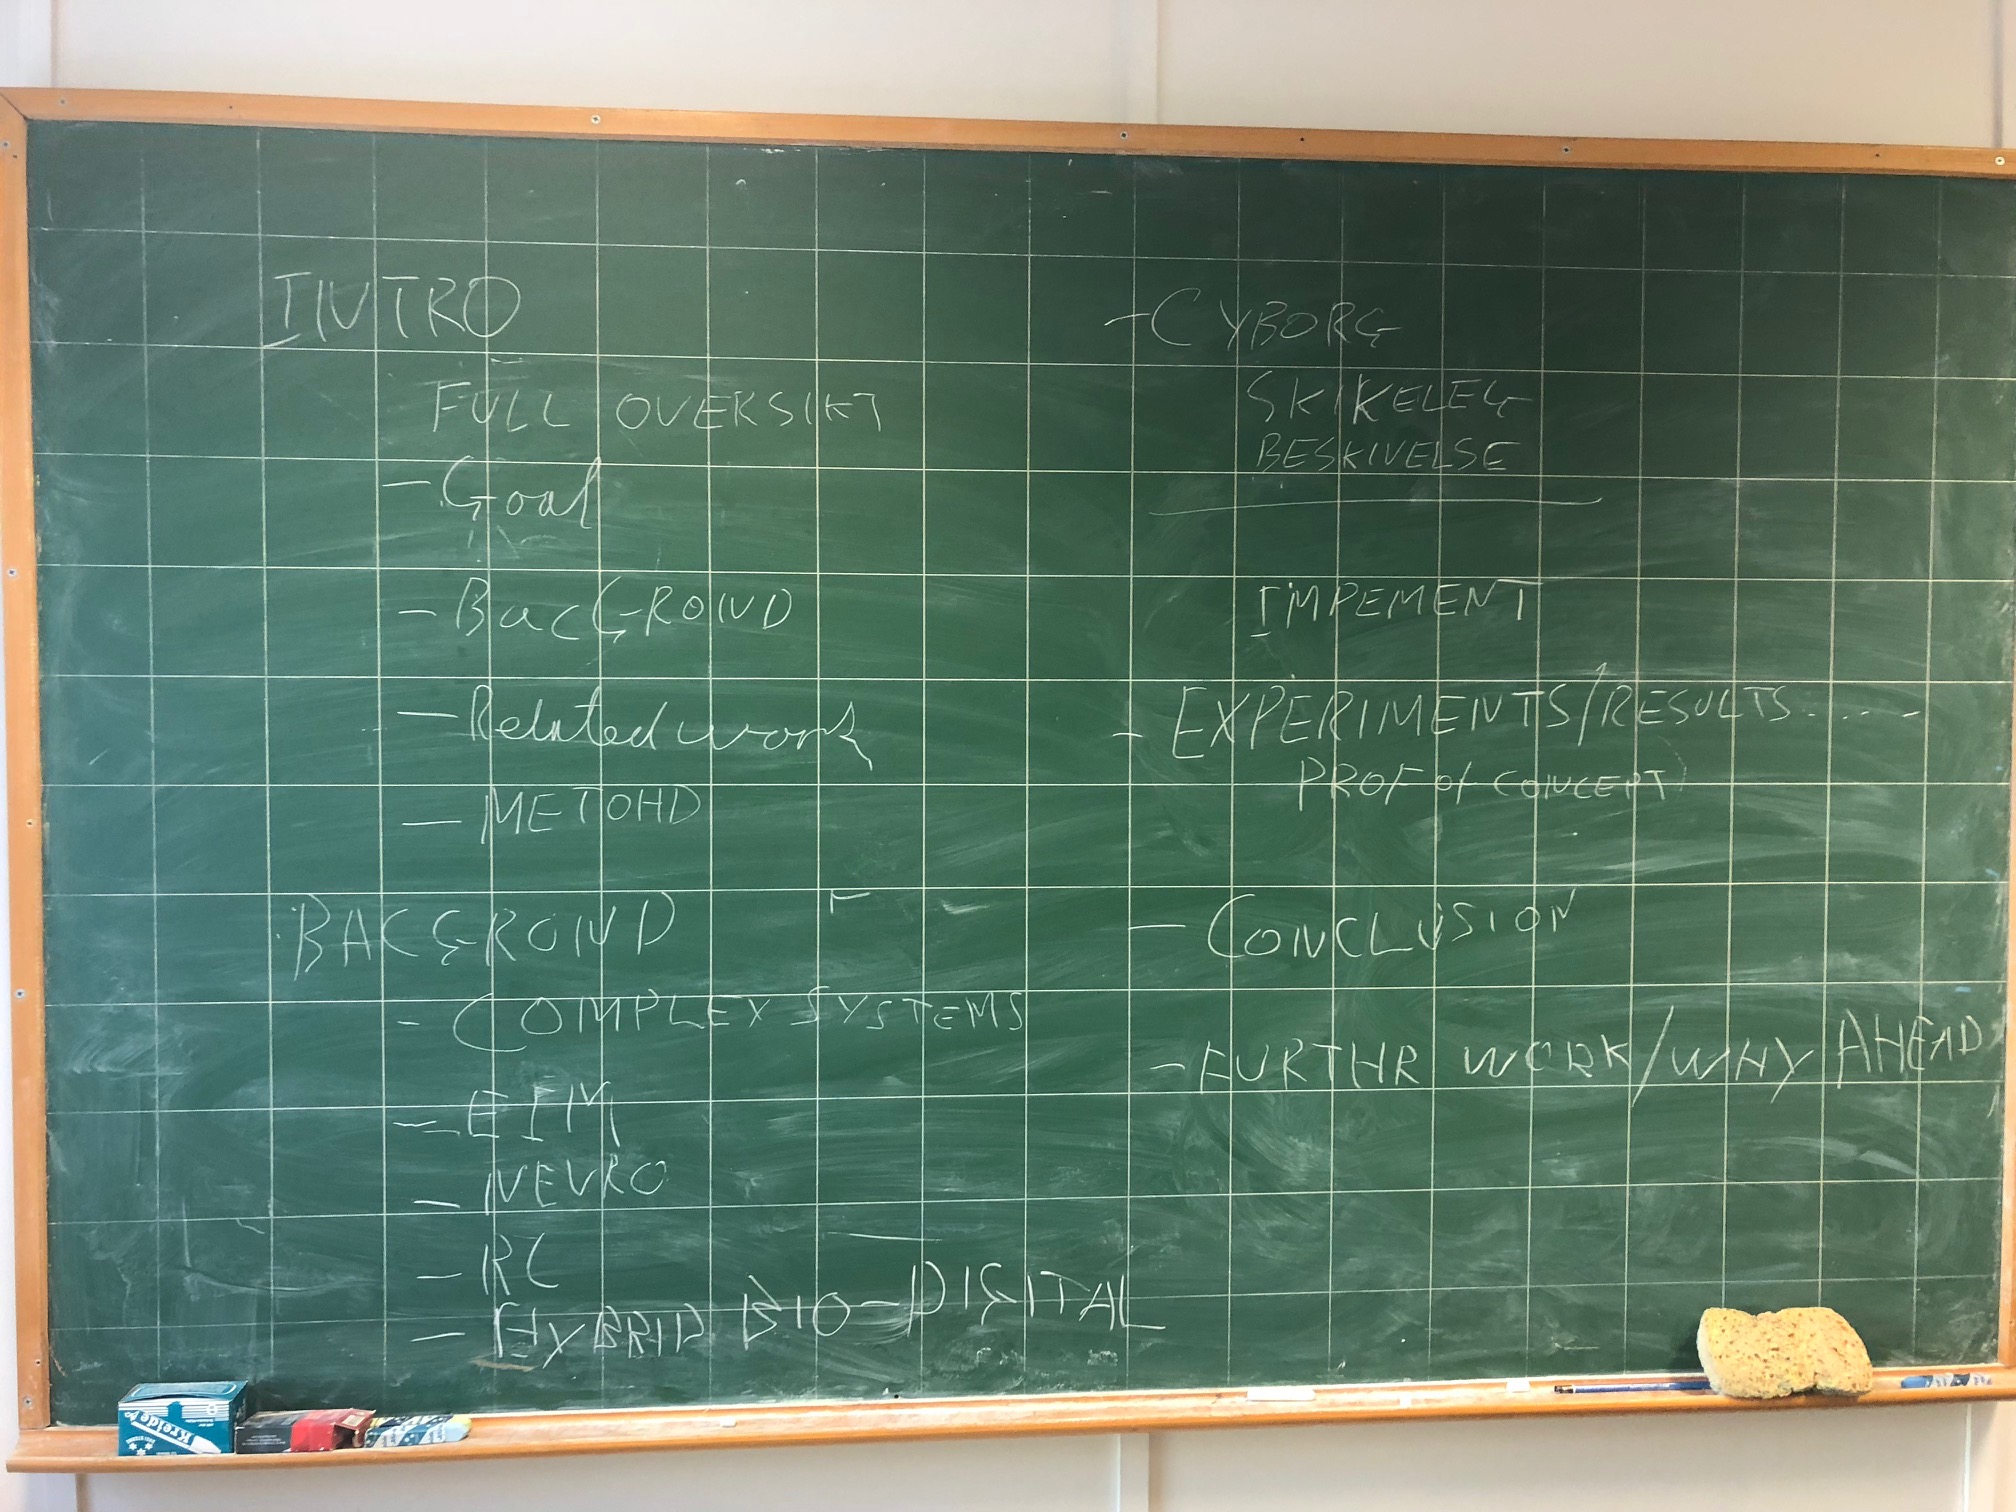 INTRO
FULL OVERSIKT
- Goal
- BacGROUND
- Related work
- METOHD
BACGROUND
- COMPLEX SYSTEMS
- EIM
- NEVRO
- RC
- HYBRID BIO-DIGITAL
- CYBORG
SKIKELEG
BESKIVELSE
IMPEMENT
- EXPERIMENTS/RESULTS.....-
PROF of CONCEPT
- CONCLUSION
- FURTHR WORK/WHY AHEAD
Kreide